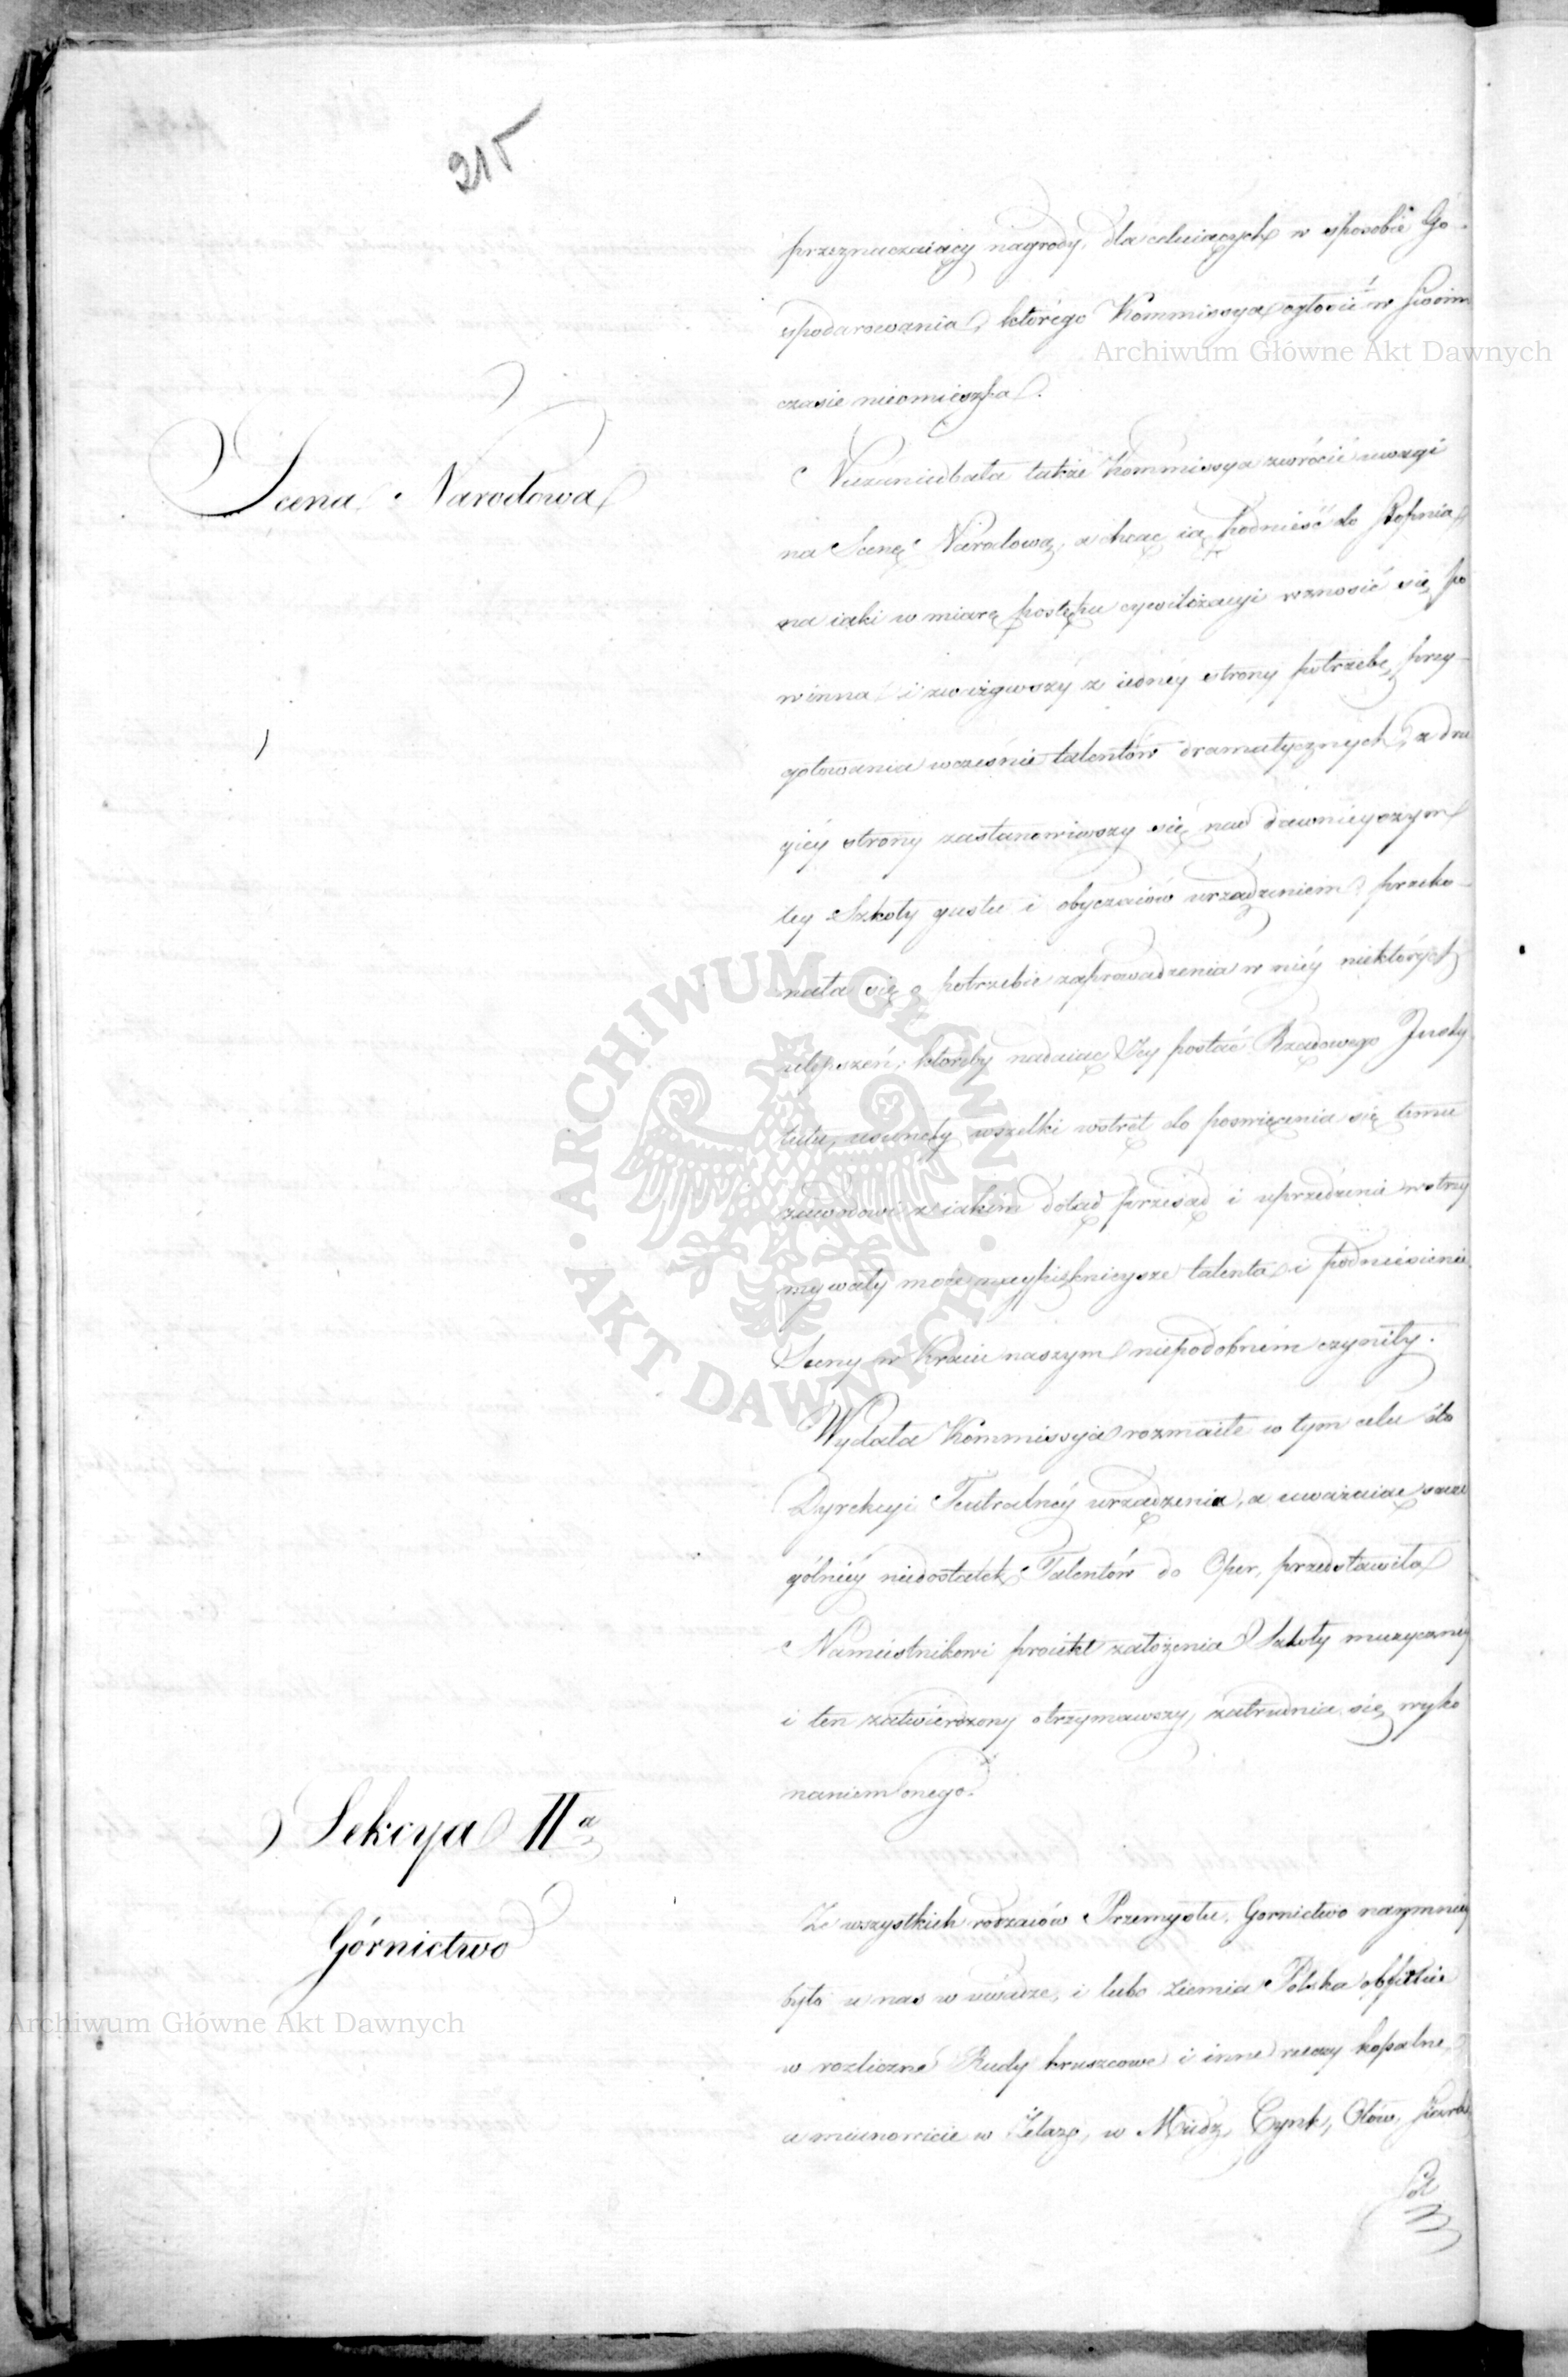 215
przeznaczaiący nagrody, dla celuiących w sposobie Go-
spodarowania, którego Kommissya ogłosić w swoim
Archiwum Główne Akt Dawnych
czasie nieomieszka.
Scena Narodowa
Niezaniedbała także Kommissya zwrócić uwagi
na Scenę Narodową, a chcąc ią podnieść do stopnia
na iaki w miarę postępu cywilizacyi wznosić się po
winna i zważywszy z iednéy strony potrzebę przy-
gotowania wcześnie talentów dramatycznych, a dru
giéy strony zastanowiwszy się nad dawnieyszym
tey Szkoły gustu i obyczaiów urządzeniem przeko-
nała się o potrzebie zaprowadzenia w niéy niektórych
ulepszeń, któreby nadaiąc Jey postać Rządowego Insty
tutu, usunęły wszelki wstręt do poswięcenia się temu
zawodowi z iakim dotąd przesąd i uprzedzenie wstrzy
mywały może naypięknieysze talenta i podniesienie
Sceny w Kraiu naszym niepodobném czyniły.
ARCHIWUM GŁÓWNE · AKT DAWNYCH ·
Wydała Kommissya rozmaite w tym celu do
Dyrekcyi Teatralnéy urządzenia, a uważaiąc szcze
gólniéy niedostatek Talentów do Oper, przedstawiła
Namiestnikowi proiekt założenia Szkoły muzycznéy
i ten zatwierdzony otrzymawszy, zatrudnia się wyko
naniem onego.
Sekcya IIa
Górnictwo
Ze wszystkich rodzaiów Przemysłu, Gornictwo naymniey
było u nas w uwadze, i lubo ziemia Polska obfituie
w rozliczne Rudy kruszcowe i inne rzeczy kopalne,
Archiwum Główne Akt Dawnych
a mianowicie w Żelazo, w Miedz, Cynk, Ołów, Siarkę